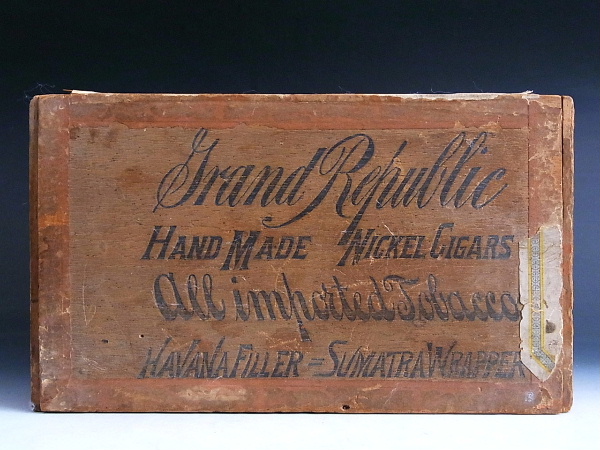 Grand Republic
HAND MADE NICKEL CIGARS
All imported Tobacco
HAVANA FILLER = SUMATRA WRAPPER